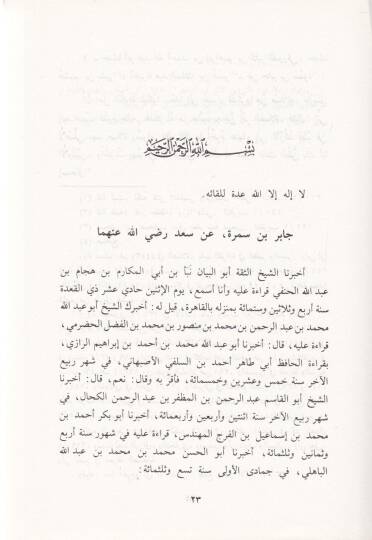 بسم الله الرحمن الرحيم
لا إله إلا الله عدة للقائه.
جابر بن سمرة، عن سعد رضي الله عنهما
أخبرنا الشيخ الثقة أبو البيان نبأ بن أبي المكارم بن هجام بن
عبد الله الحنفي قراءة عليه وأنا أسمع، يوم الإثنين حادي عشر ذي القعدة
سنة أربع وثلاثين وستمائة بمنزله بالقاهرة، قيل له: أخبرك الشيخ أبو عبد الله
محمد بن عبد الرحمن بن محمد بن منصور بن محمد بن الفضل الحضرمي،
قراءة عليه، قال: أخبرنا أبو عبد الله محمد بن أحمد بن إبراهيم الرازي،
بقراءة الحافظ أبي طاهر أحمد بن السلفي الأصبهاني، في شهر ربيع
الآخر سنة خمس وعشرين وخمسمائة، فأقرّ به وقال: نعم، قال: أخبرنا
الشيخ أبو القاسم عبد الرحمن بن المظفر بن عبد الرحمن الكحال، في
شهر ربيع الآخر سنة اثنتين وأربعين وأربعمائة، أخبرنا أبو بكر أحمد بن
محمد بن إسماعيل بن الفرج المهندس، قراءة عليه في شهور سنة أربع
وثمانين وثلثمائة، أخبرنا أبو الحسن محمد بن محمد بن عبد الله
الباهلي، في جمادى الأولى سنة تسع وثلثمائة:
٢٣